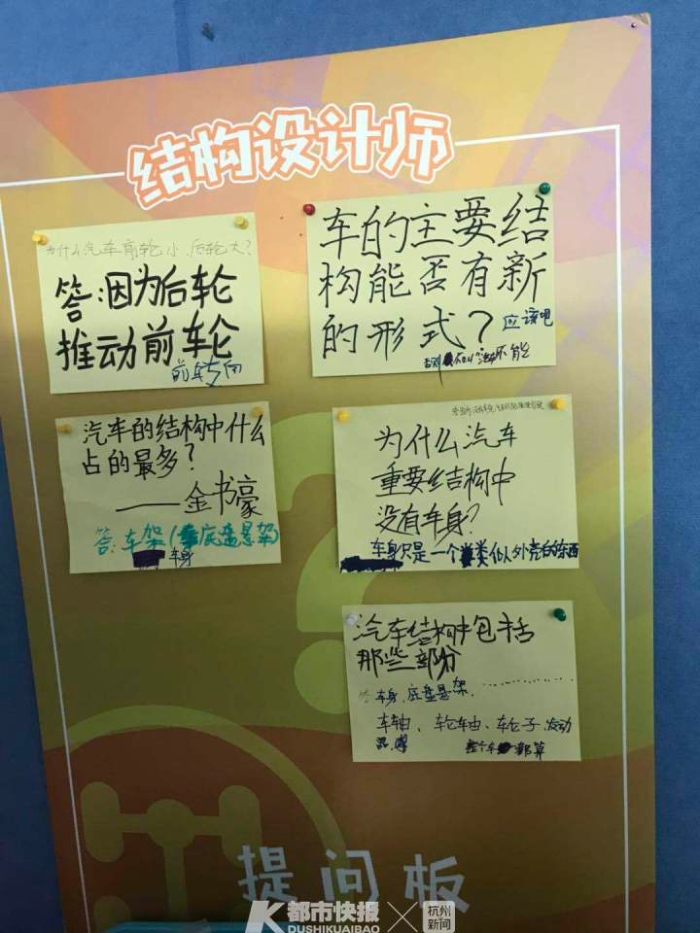 结构设计师
为什么汽车前轮小 后轮大?
答:因为后轮
推动前轮
前轮转向
车的主要结
构能否有新
的形式?
应该吧
汽车的结构中什么
占的最多?
——金书豪
答:车架(底盘悬架)
车身
为什么汽车
重要结构中
没有车身?
车身只是一个类似外壳的东西
汽车结构中包括
那些部分
答 车身、底盘悬架..............
车轴、轮车由、车轮子、发动
整个车都算
提问板
K 都市快报 × 杭州新闻
DUSHIKUAIBAO